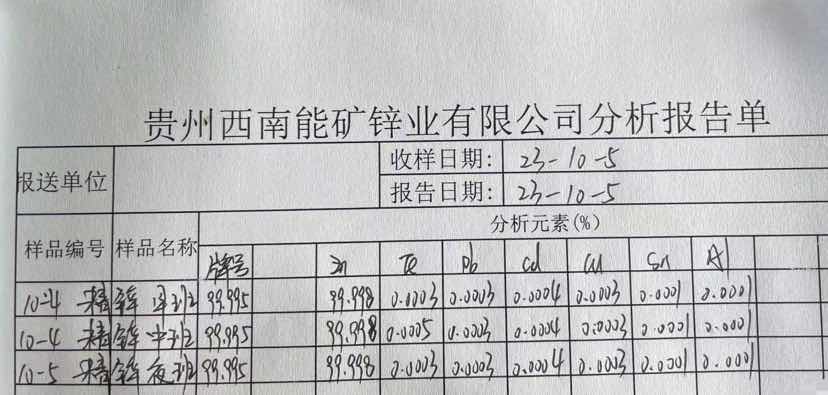 贵州西南能矿锌业有限公司分析报告单
报送单位 收样日期: 23-10-5
报告日期: 23-10-5
样品编号 样品名称 分析元素(%)
牌号 Zn Fe Pb Cd Cu Sn Al
10-4 精锌 早班 99.995 99.998 0.0003 0.0003 0.0004 0.0003 0.0001 0.0001
10-4 精锌 中班 99.995 99.998 0.0005 0.0003 0.0004 0.0003 0.0001 0.0001
10-5 精锌 夜班 99.995 99.998 0.0003 0.0003 0.0004 0.0003 0.0001 0.0001